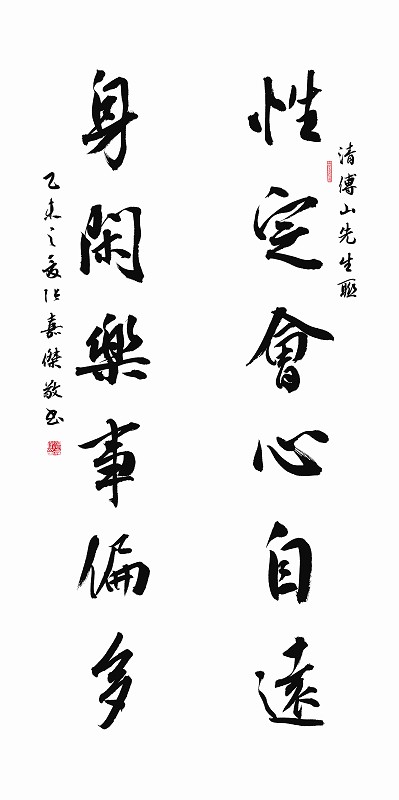 清傅山先生聯
性定會心自遠
身閑樂事偏多
乙未之夏張嘉傑敬書